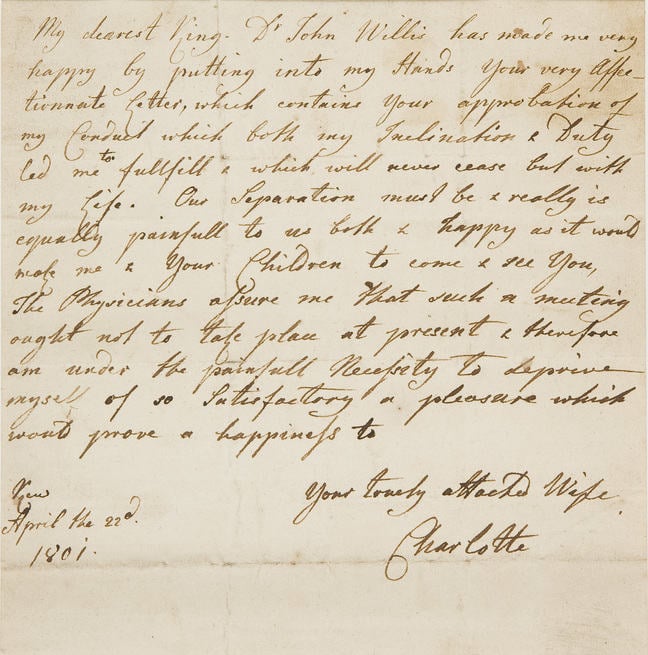 My dearest King. Dr John Willis has made me very
happy by putting into my Hands Your very Affec-
tionnate Letter, which contains Your approbation of
my Conduct which both my Inclination & Duty
led me to fullfill & which will never cease but with
my Life. Our Separation must be & really is
equally painfull to us both & happy as it would
make me & Your Children to come & see You,
The Physicians assure me that such a meeting
ought not to take place at present & therefore
am under the painfull Necessity to deprive
myself of so Satisfactory a pleasure which
would prove a happiness to
Your truely attached Wife
Charlotte
Kew
April the 22d.
1801.